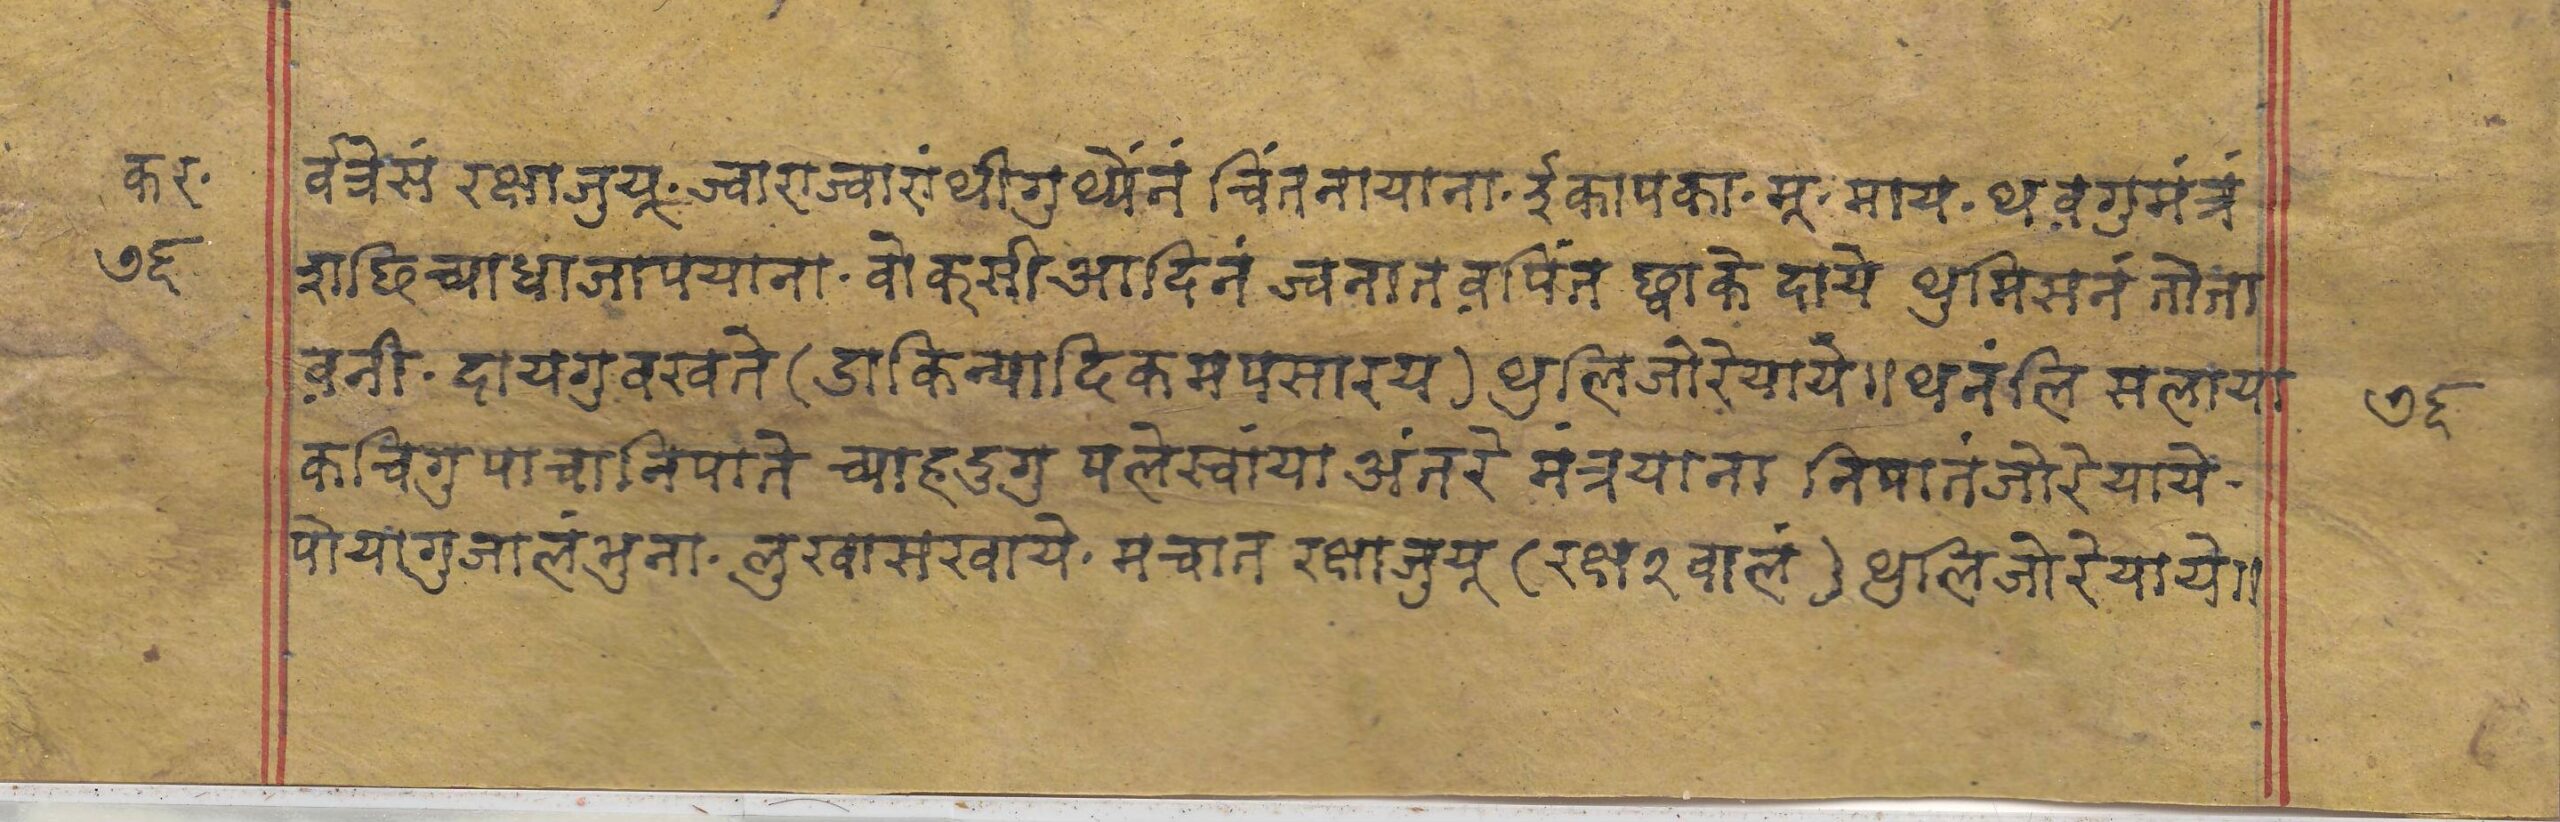 कर. र्वत्रेसं रक्षाजुयू. ज्वाराज्वारांथीगुर्थ्येनं चिंतनायाना. ईकापका. मू. माय. थव़गुमंत्रं
७६ शछिच्याधाजापयाना. वोक्सीआदिनं ज्वनातव़पिंत छ्वाके दाये थुमिसनं तोता
व़नी. दायगुबखते (डाकिन्यादिकमपसारय) थुलिजोरेयाये॥ थनंलि मलाया ७६
कचिगु पाचानिपाते च्याहदुगु पलेस्वांया अंतरे मंत्रयाना निपातंजोरेयाये-
पोयागुजालंभुना. लुखामखाये. मचात रक्षाजुयू (रक्ष२बालं) थुलिजोरेयाये॥